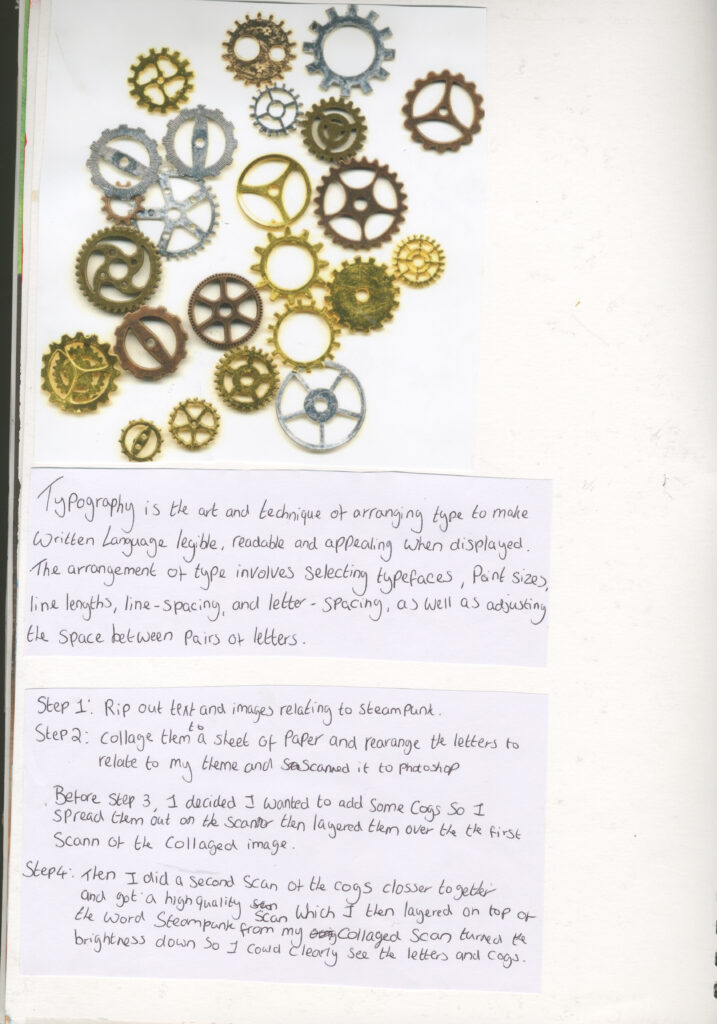 Typography is the art and technique of arranging type to make
Written Language legible, readable and appealing when displayed.
The arrangement of type involves selecting typefaces, Point sizes,
line lengths, line-spacing, and letter-spacing, as well as adjusting
the space between Pairs of letters.
Step 1: Rip out text and images relating to Steampunk.
Step 2: collage them to a sheet of Paper and rearange the letters to
relate to my theme and Scanned it to Photoshop
Before Step 3, I decided I wanted to add some Cogs So I
spread them out on the Scannor then layered them over the the first
Scann of the Collaged image.
Step4: Then I did a second Scan of the cogs closser together
and got a high quality Scan Which I then layered on top of
the Word Steampunk from my Collaged Scan turned the
brightness down So I could Clearly see the letters and Cogs.